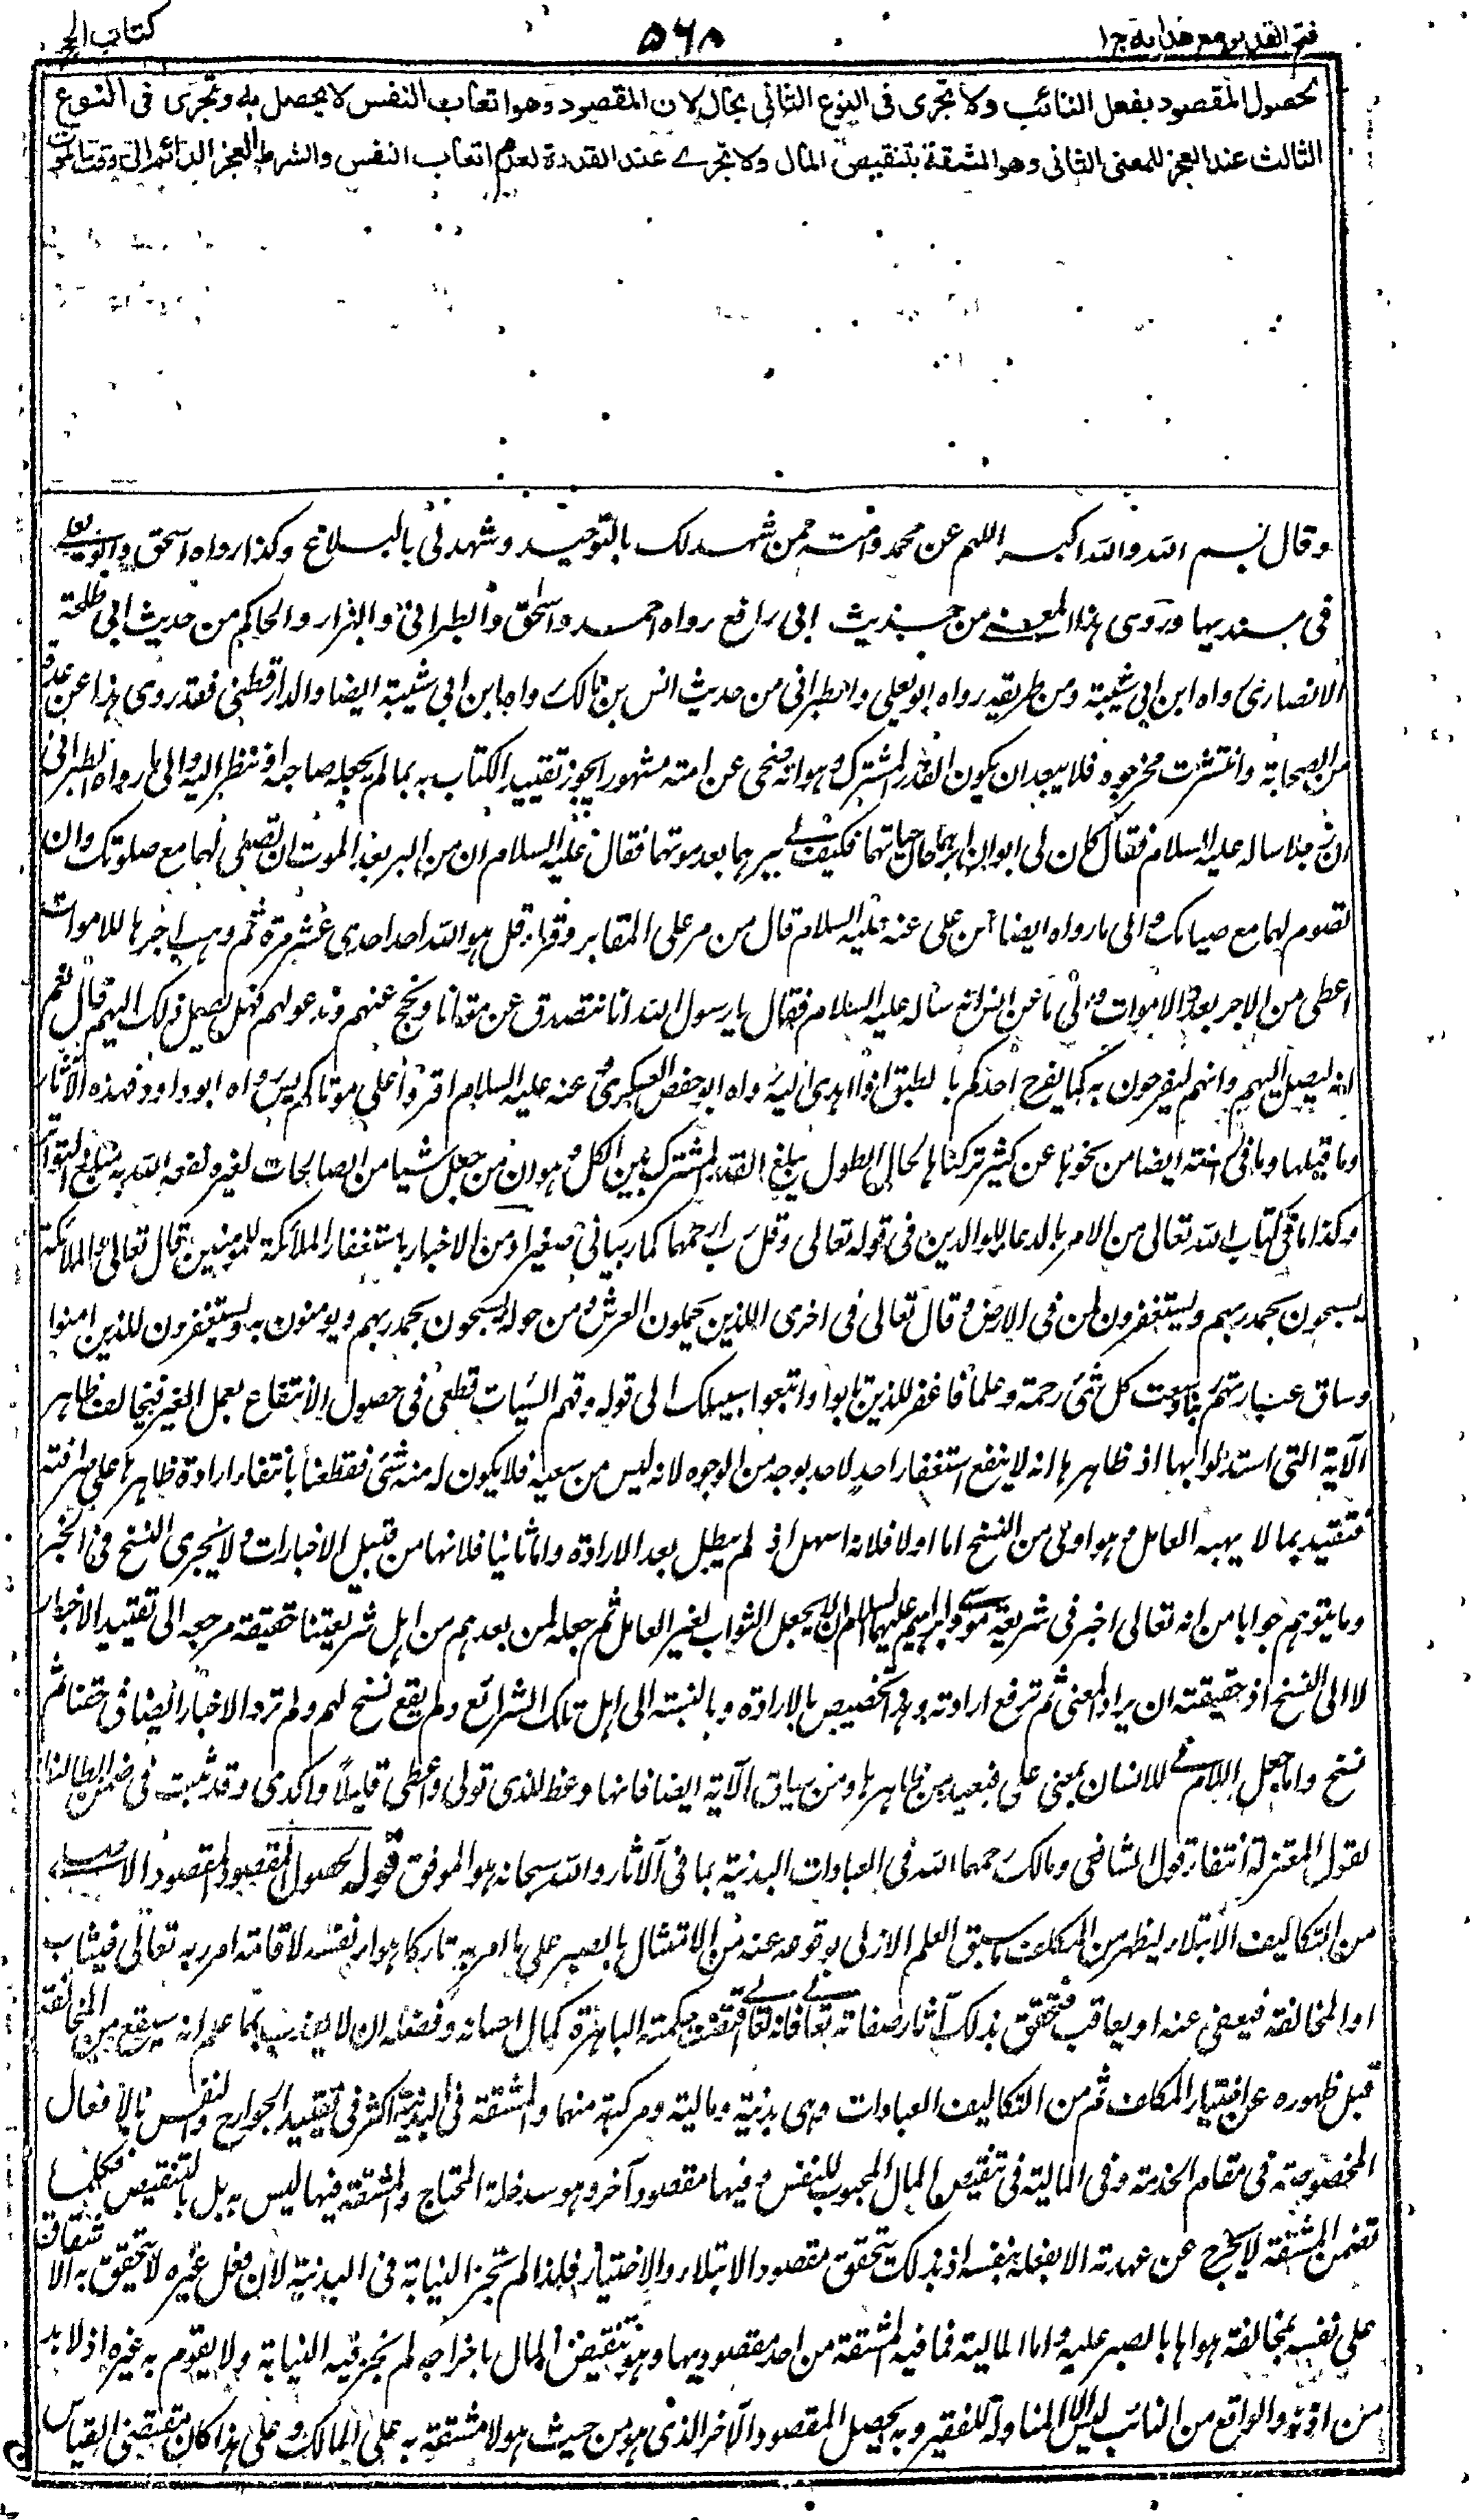 فتح القدير مع هدايه ج ا
۵۶۸
كتاب الحج
لحصول المقصود بفعل النائب ولا تجرى فى النوع الثانى بحال لان المقصود وهو اتعاب النفس لا يحصل به وتجرى فى النوع
الثالث عند العجز للمعنى الثانى وهو المشقة بتنقيص المال ولا تجرے عند القدرة لعدم اتعاب النفس والشرط العجز الدائم الى وقت الموت
وقال بسم الله والله اكبر اللهم عن محمد وامته ممن شهد لك بالتوحيد وشهد لى بالبلاغ وكذا رواه اسحق وابو يعلى
فى مسنديهما وروى هذا المعنى من حديث ابى رافع رواه احمد واسحق والطبرانى والبزار والحاكم من حديث ابى طلحة
الانصارى رواه ابن ابى شيبة ومن طريقه رواه ابو يعلى والطبرانى من حديث انس بن مالك رواه ابن ابى شيبة ايضا والدارقطنى فقد روى هذا عن عدة
من الصحابة وانتشرت مخرجوه فلا يبعد ان يكون القدر المشترك وهو انه ضحى عن امته مشهورا يجوز تقييد الكتاب به بما لم يجعله صاحبه او ننظر اليه والى ما رواه الطبرانى
ان رجلا ساله عليه السلام فقال كان لى ابوان ابرهما حال حياتهما فكيف لى ببرهما بعد موتهما فقال عليه السلام ان من البر بعد الموت ان تصلى لهما مع صلوتك وان
تصوم لهما مع صيامك والى ما رواه ايضا عن على عنه عليه السلام قال من مر على المقابر وقرأ قل هو الله احد احدى عشر مرة ثم وهب اجرها للاموات
اعطى من الاجر بعدد الاموات والى ما عن انس انه سأله عليه السلام فقال يا رسول الله انا نتصدق عن موتانا ونحج عنهم وندعو لهم فهل يصل ذلك اليهم قال نعم
انه ليصل اليهم وانهم ليفرحون به كما يفرح احدكم بالطبق اذا اهدى اليه رواه ابو حفص العسكرى وعنه عليه السلام اقرؤا على موتاكم يس رواه ابو داود فهذه الآثار
وما قبلها وما فى السنة ايضا من نحوها عن كثير تركناه لحال الطول يبلغ القدر المشترك بين الكل وهو ان من جعل شيئا من الصالحات لغيره نفعه الله به مبلغ التواتر
وكذا ما فى كتاب الله تعالى من الامر بالدعاء للوالدين فى قوله تعالى وقل رب ارحمهما كما ربيانى صغيرا ومن الاخبار باستغفار الملائكة للمومنين قال تعالى والملائكة
يسبحون بحمد ربهم ويستغفرون لمن فى الارض وقال تعالى فى اخرى الذين يحملون العرش ومن حوله يسبحون بحمد ربهم ويومنون به ويستغفرون للذين امنوا
وساق عبارتهم ربنا وسعت كل شئ رحمة وعلما فاغفر للذين تابوا واتبعوا سبيلك الى قوله وقهم السيئات قطعى فى حصول الانتفاع بعمل الغير فيخالف ظاهر
الآية التى استدلوا بها اذ ظاهرها انه لا ينفع استغفار احد لاحد بوجه من الوجوه لانه ليس من سعيه فلا يكون له منه شئ فقطعنا بانتفاء ارادة ظاهرها على صرافته
فتقيد بما لا يهبه العامل وهو اولى من النسخ اما اولا فلانه اسهل اذ لم يبطل بعد الارادة واما ثانيا فلانها من قبيل الاخبارات ولا يجرى النسخ فى الخبر
وما يتوهم جوابا من انه تعالى اخبر فى شريعة موسى وابراهيم عليهما السلام ان لا يجعل الثواب لغير العامل ثم جعله لمن بعدهم من اهل شريعتنا حقيقة مرجعه الى تقييد الاخبار
لا الى النسخ اذ حقيقته ان يراد المعنى ثم ترفع ارادته وهذا تخصيص بالارادة وبالنسبة الى اهل تلك الشرائع ولم يقع نسخ لهم ولم ترد الاخبار ايضا فى حقنا ثم
نسخ واما جعل اللام فى للانسان بمعنى على فبعيد من ظاهرها ومن سياق الآية ايضا فانها وعظ للذى تولى واعطى قليلا واكدى وقد ثبت فى ضمن ابطالنا
لقول المعتزلة انتفاء قول الشافعى ومالك رحمهما الله فى العبادات البدنية بما فى الآثار والله سبحانه هو الموفق قوله لحصول المقصود المقصود الاصلى
من التكاليف الابتلاء ليظهر من المكلف ما سبق العلم الازلى بوقوعه عنه من الامتثال بالصبر على ما امر به تاركا هوى نفسه لاقامة امر ربه تعالى فيثاب
او المخالفة فيعفى عنه او يعاقب فتحقق بذلك آثار صفاته تعالى فانه تعالى اقتضت حكمته الباهرة وكمال احسانه وفضله ان لا يعذب بما علم انه سيقع من المخالفة
قبل ظهوره عن اختيار المكلف ثم من التكاليف العبادات وهى بدنية ومالية ومركبة منهما والمشقة فى البدنية اكثر فى تقييد الجوارح والنفس بالافعال
المخصوصة فى مقام الخدمة وفى المالية فى تنقيص المال المحبوب للنفس وفيها مقصود آخر وهو سد خلة المحتاج والمشقة فيها ليس به بل بالتنقيص فكلما
تضمن المشقة لا يخرج عن عهدته الا بفعله بنفسه اذ بذلك يتحقق مقصود الابتلاء والاختبار فلذا لم تجز النيابة فى البدنية لان فعل غيره لا يتحقق به الاشقاق
على نفسه بمخالفة هواها بالصبر عليه واما المالية فما فيه المشقة من احد مقصوديها وهو تنقيص المال باخراجه لم تجز فيه النيابة ولا يقوم به غيره اذ لا بد
من اذنه والواقع من النائب ليس الا المناولة للفقير وبه يحصل المقصود الآخر الذى هو من حيث هو لا مشقة به على المالك وعلى هذا كان مقتضى القياس